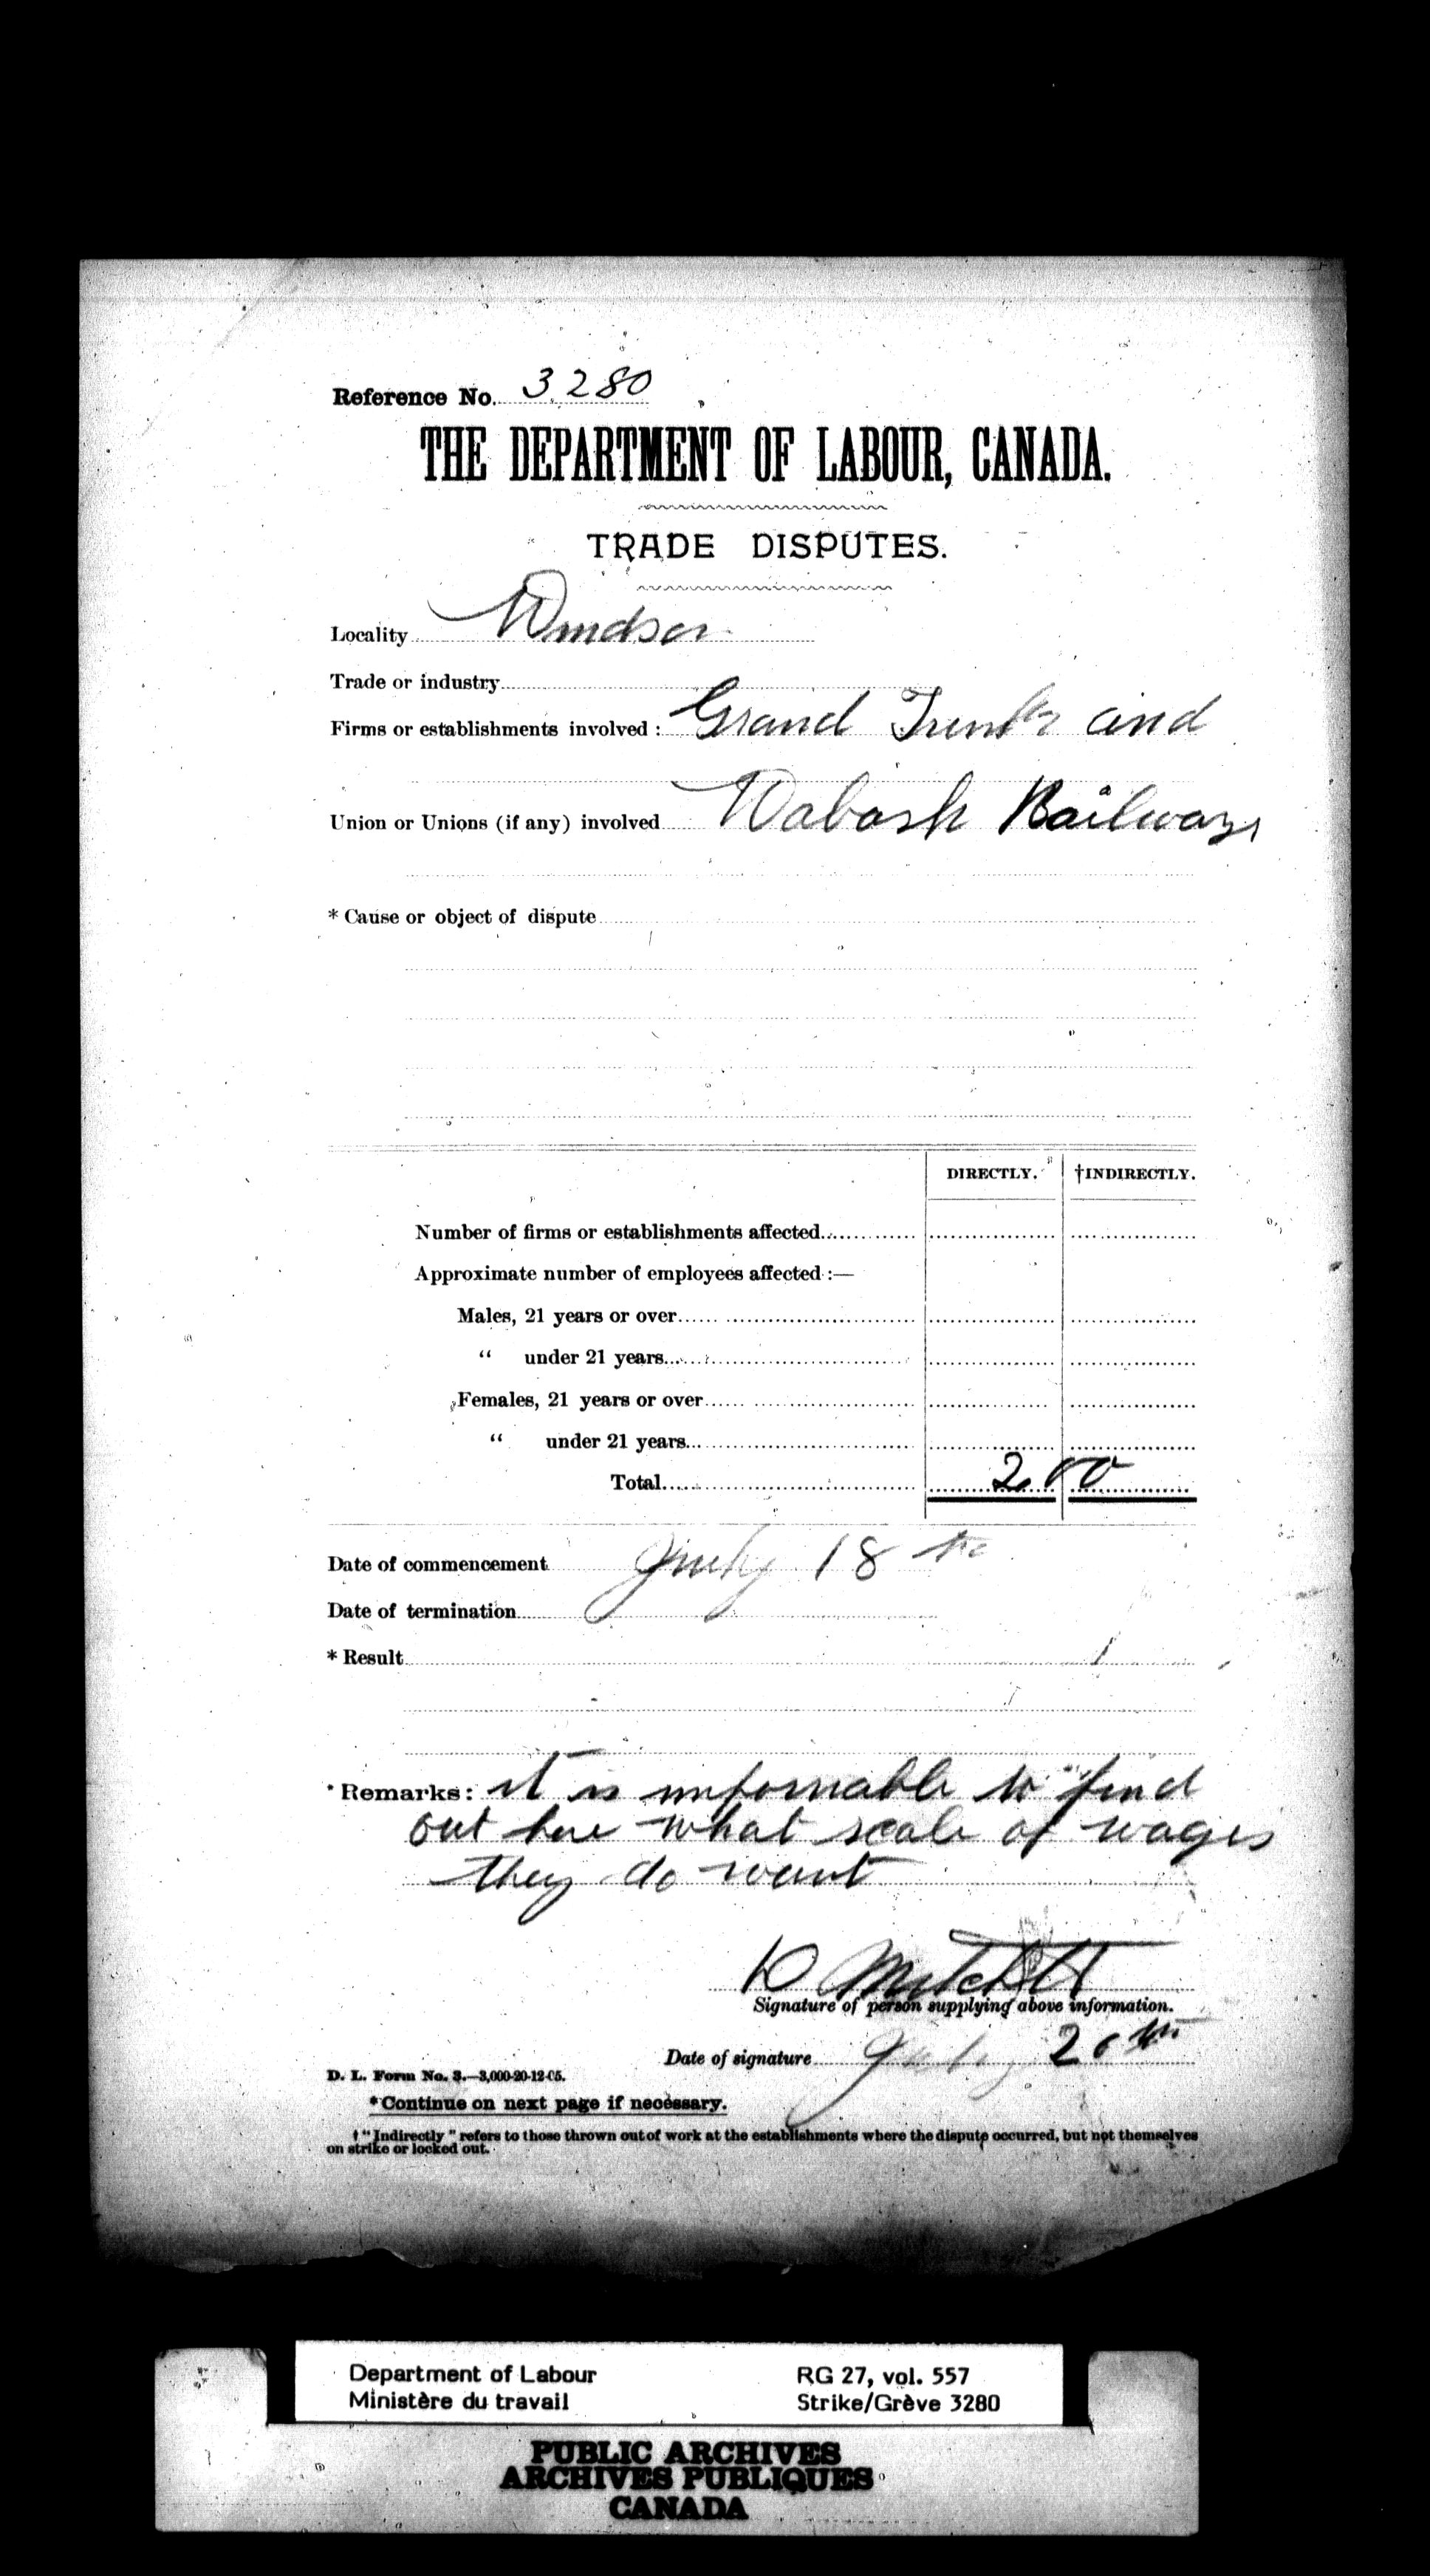 Reference No. 3280
THE DEPARTMENT OF LABOUR, CANADA.
TRADE DISPUTES.
Locality Windsor
Trade or industry
Firms or establishments involved : Grand Trunk and
Union or Unions (if any) involved Wabash Railways
* Cause or object of dispute
DIRECTLY. †INDIRECTLY.
Number of firms or establishments affected
Approximate number of employees affected :—
Males, 21 years or over
“ under 21 years
Females, 21 years or over
“ under 21 years
Total 200
Date of commencement July 18th
Date of termination
* Result
* Remarks: it is impossable to find
out here what scale of wages
they do want
D Mitchell
Signature of person supplying above information.
Date of signature July 20th
D. L. Form No. 3.—3,000-20-12-05.
*Continue on next page if necessary.
† “Indirectly” refers to those thrown out of work at the establishments where the dispute occurred, but not themselves
on strike or locked out.
Department of Labour RG 27, vol. 557
Ministère du travail Strike/Grève 3280
PUBLIC ARCHIVES
ARCHIVES PUBLIQUES
CANADA